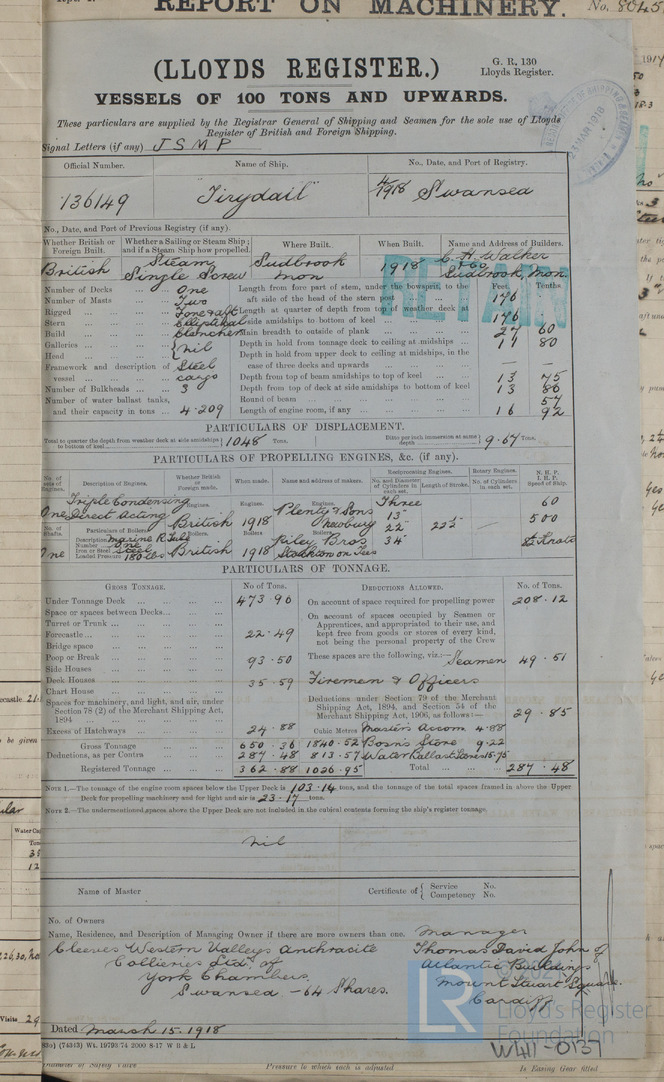 REPORT ON MACHINERY. No. 8045
(LLOYDS REGISTER.)
G. R. 130
Lloyds Register.
VESSELS OF 100 TONS AND UPWARDS.
These particulars are supplied by the Registrar General of Shipping and Seamen for the sole use of Lloyds
Register of British and Foreign Shipping.
Signal Letters (if any) J S M P
Official Number. Name of Ship. No., Date, and Port of Registry.
136149 "Tirydail" 4/1918 Swansea
No., Date, and Port of Previous Registry (if any).
Whether British or Foreign Built. Whether a Sailing or Steam Ship; and if a Steam Ship how propelled. Where Built. When Built. Name and Address of Builders.
British Steam Single Screw Sudbrook Mon 1918 C. H. Walker & Co Sudbrook, Mon.
RETAIN
Number of Decks ... One Length from fore part of stem, under the bowsprit, to the aft side of the head of the stern post Feet. Tenths
176
Number of Masts ... Two
Rigged ... Fore & aft Length at quarter of depth from top of weather deck at side amidships to bottom of keel 176
Stern ... Elliptical
Build ... Clencher Main breadth to outside of plank 27 60
Galleries ... nil Depth in hold from tonnage deck to ceiling at midships 11 80
Head ... Depth in hold from upper deck to ceiling at midships, in the case of three decks and upwards — —
Framework and description of vessel ... Steel cargo Depth from top of beam amidships to top of keel 13 75
Number of Bulkheads ... 3 Depth from top of deck at side amidships to bottom of keel 13 86
Number of water ballast tanks, and their capacity in tons ... 4 - 209 Round of beam 57
Length of engine room, if any 16 92
PARTICULARS OF DISPLACEMENT.
Total to quarter the depth from weather deck at side amidships to bottom of keel 1048 Tons. Ditto per inch immersion at same depth 9.67 Tons.
PARTICULARS OF PROPELLING ENGINES, &c. (if any).
No. of sets of Engines. Description of Engines. Whether British or Foreign made. When made. Name and address of makers. Reciprocating Engines. Rotary Engines. N. H. P. I. H. P. Speed of Ship.
No. and Diameter of Cylinders in each set. Length of Stroke. No. of Cylinders in each set.
One Triple Condensing Direct Acting Engines. British Engines. 1918 Engines. Plenty & Sons Newbury Three 13" 22" 34" 22½" — 60 500
No. of Shafts. Particulars of Boilers. Boilers Boilers
One Description Marine R. Tube
Number One
Iron or Steel Steel
Loaded Pressure 180 lbs British 1918 Riley Bros Stockton on Tees Knots
PARTICULARS OF TONNAGE.
GROSS TONNAGE. No of Tons. DEDUCTIONS ALLOWED. No. of Tons.
Under Tonnage Deck 473.90 On account of space required for propelling power 208.12
Space or spaces between Decks On account of spaces occupied by Seamen or
Turret or Trunk Apprentices, and appropriated to their use, and
Forecastle 22.49 kept free from goods or stores of every kind,
Bridge space not being the personal property of the Crew
Poop or Break 93.50 These spaces are the following, viz.:— Seamen 49.51
Side Houses
Deck Houses 35.59 Firemen & Officers
Chart House
Spaces for machinery, and light, and air, under Section 78 (2) of the Merchant Shipping Act, 1894 Deductions under Section 79 of the Merchant Shipping Act, 1894, and Section 54 of the Merchant Shipping Act, 1906, as follows:— 29.85
Excess of Hatchways 24.88 Cubic Metres Master's Accom 4.88
Gross Tonnage 650.36 1840.52 Bosn's Store 9.22
Deductions, as per Contra 287.48 813.57 Water Ballast Tanks 15.75
Registered Tonnage 362.88 1026.95 Total 287.48
NOTE 1.—The tonnage of the engine room spaces below the Upper Deck is 103.14 tons, and the tonnage of the total spaces framed in above the Upper
Deck for propelling machinery and for light and air is 23.17 tons.
NOTE 2.—The undermentioned spaces above the Upper Deck are not included in the cubical contents forming the ship's register tonnage.
nil
Name of Master Certificate of { Service No. Competency No.
No. of Owners
Name, Residence, and Description of Managing Owner if there are more owners than one. Manager
Cleeves Western Valleys Anthracite Thomas David John of
Collieries Ltd. of Atlantic Buildings
York Chambers, Mount Stuart Square
Swansea - 64 Shares. Cardiff
Dated March 15. 1918
(74343) Wt. 19793/74 2000 8-17 W B & L
LR
© 2021
Lloyd's Register
Foundation
W411-0137
Pressure to which each is adjusted Is Easing Gear fitted